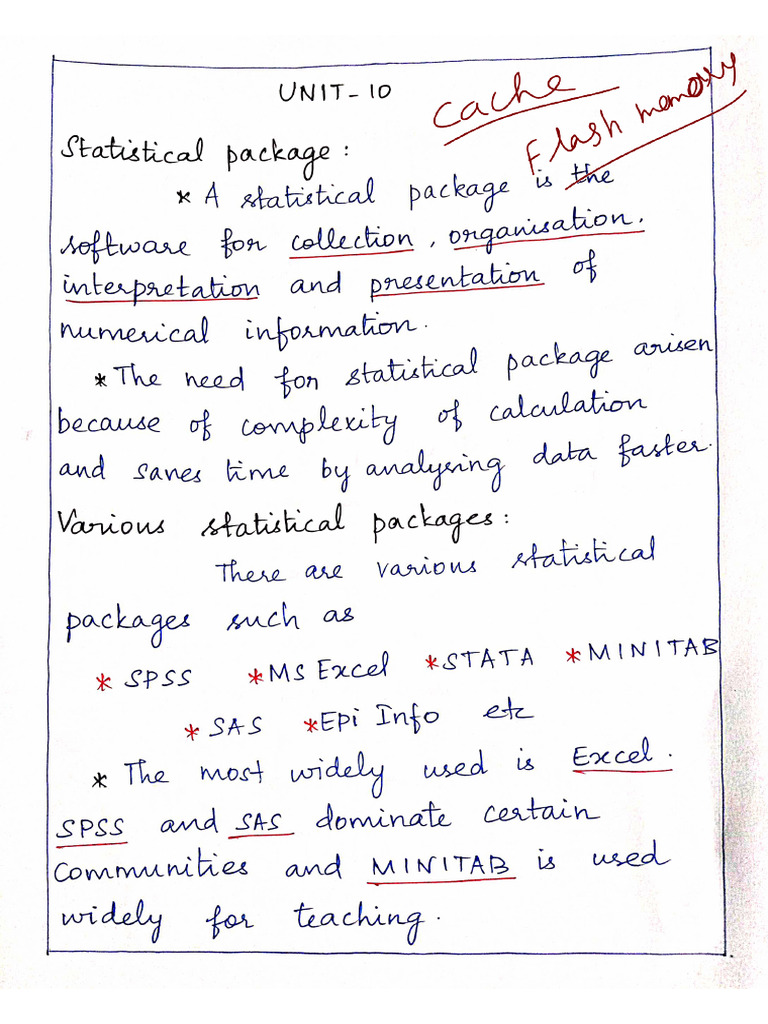 UNIT-10
Cache
Flash memory
Statistical package:
* A statistical package is the
software for collection, organisation,
interpretation and presentation of
numerical information.
* The need for statistical package arisen
because of complexity of calculation
and saves time by analysing data faster.
Various statistical packages:
There are various statistical
packages such as
* SPSS * MS Excel * STATA * MINITAB
* SAS * EPi Info etc
* The most widely used is Excel.
SPSS and SAS dominate certain
Communities and MINITAB is used
widely for teaching.